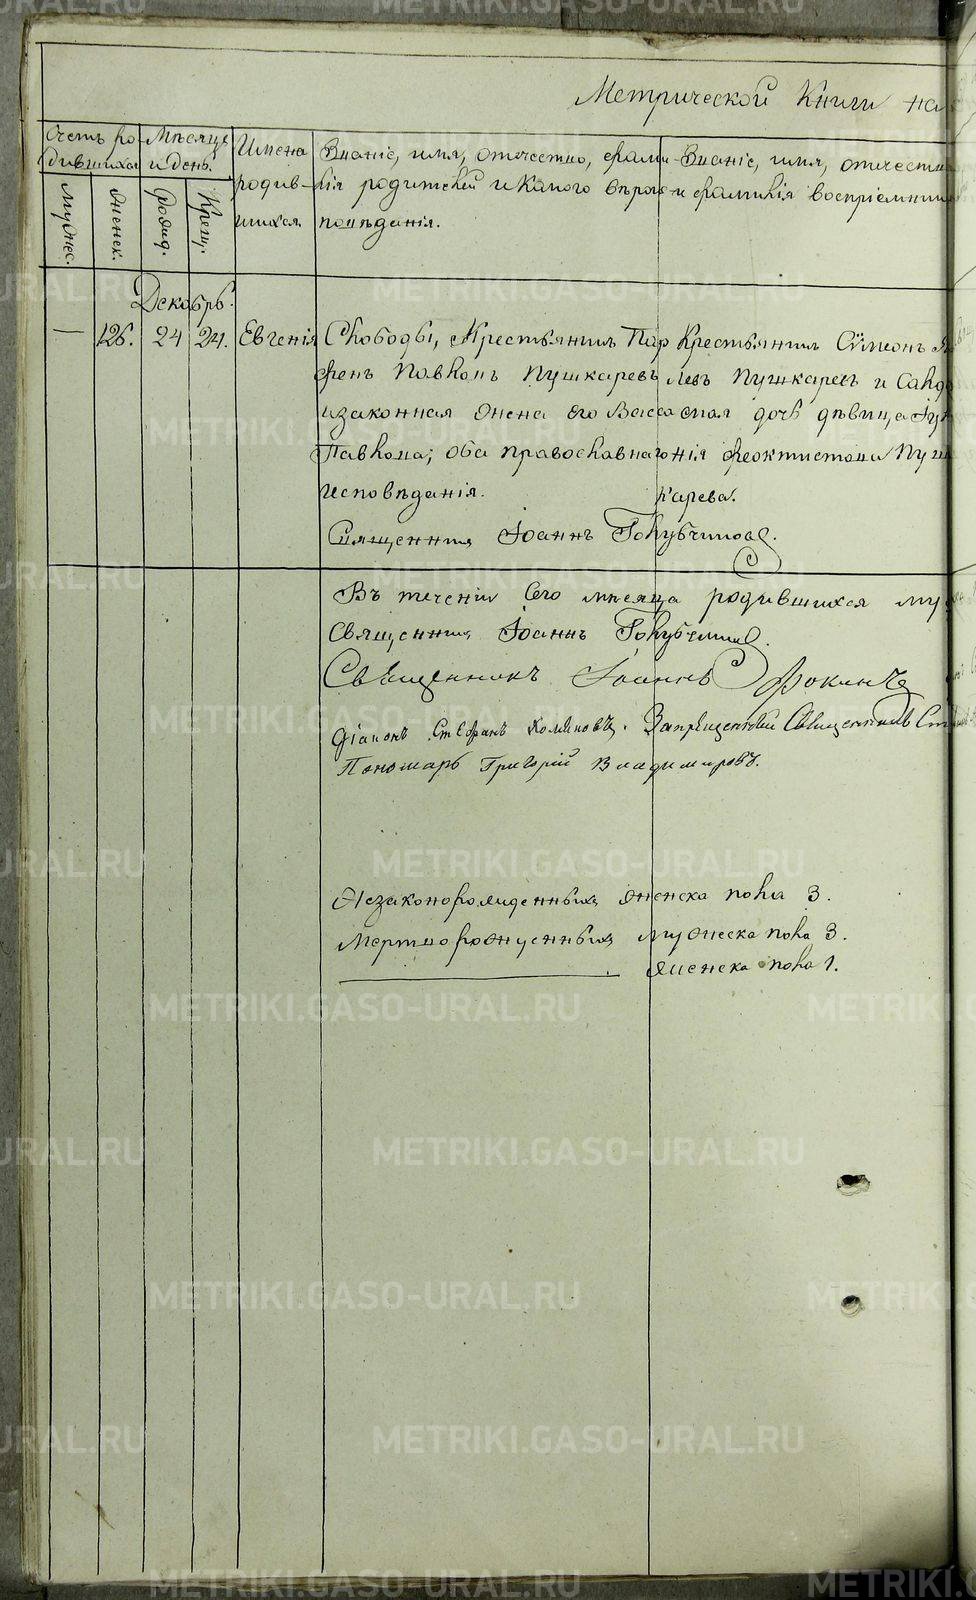 Метрической Книги на
Счетъ ро-
дившихся
Мѣсяцъ
и день.
Имена
родив-
шихся
Званіе, имя, отчество, фами-
лія родителей и какого вѣроис-
повѣданія.
Званіе, имя, отчество
и фамилія воспріемник
Мужес.
Женск.
Рожд.
Крещ.
Декабрь.
— 126. 24 24. Евгенія
Слободы, Крестьянинъ Пар
фенъ Павловъ Пушкаревъ
и законная жена его Васса
Павлова; оба православнаго
исповѣданія.
Крестьянинъ Сѵмеонъ
левъ Пушкаревъ и
дочь дѣвица
нія Феоктистова Пуш
карева.
Священникъ Іоаннъ Голубчиковъ.
Въ теченіи сего мѣсяца родившихся му
Священникъ Іоаннъ Голубчиковъ.
Священникъ Іоаннъ Фокинъ
Діаконъ Стефанъ Хомяковъ. Запрещенный Священникъ Ст
Пономарь Григорій Владимировъ.
Незаконорожденныхъ женска пола 3.
Мертворожденныхъ мужеска пола 3.
женска пола 1.
METRIKI.GASO-URAL.RU